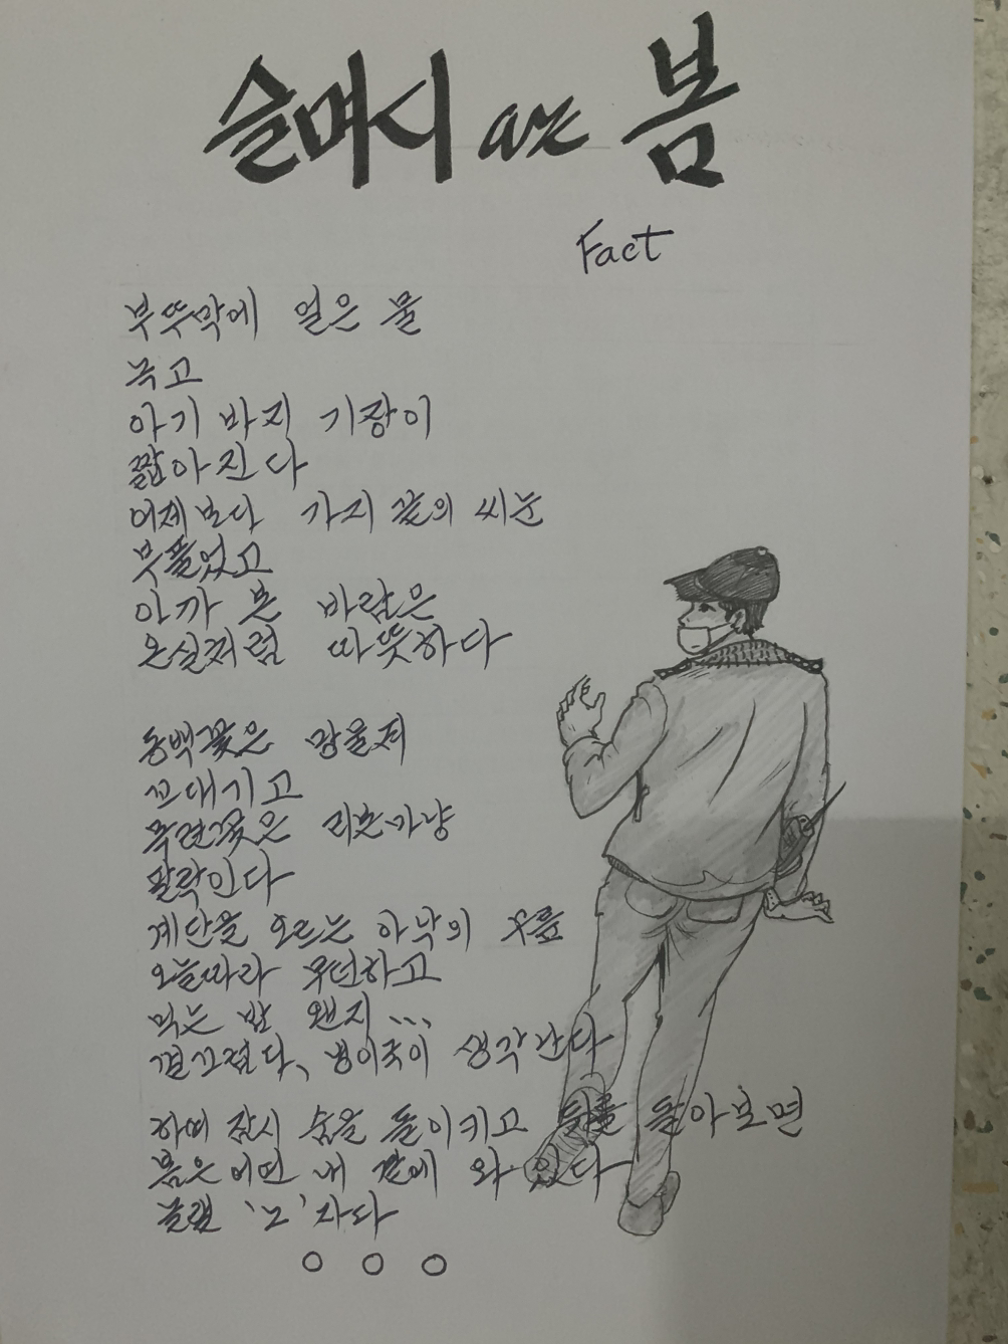 슬며시 온 봄
Fact
부뚜막에 얼은 물
녹고
아기 바지 기장이
짧아진다
어제보다 가지 끝의 씨눈
부풀었고
아까 분 바람은
온실처럼 따뜻하다
동백꽃은 망울져
꼬대기고
목련꽃은 리본마냥
팔락인다
계단을 오르는 아낙의 무릎
오늘따라 무던하고
먹는 밥 왠지...
껄끄럽다、냉이국이 생각난다
하여 잠시 숨을 돌이키고 뒤를 돌아보면
봄은 어떤 내 곁에 와 있다
놀랠 '노'자다